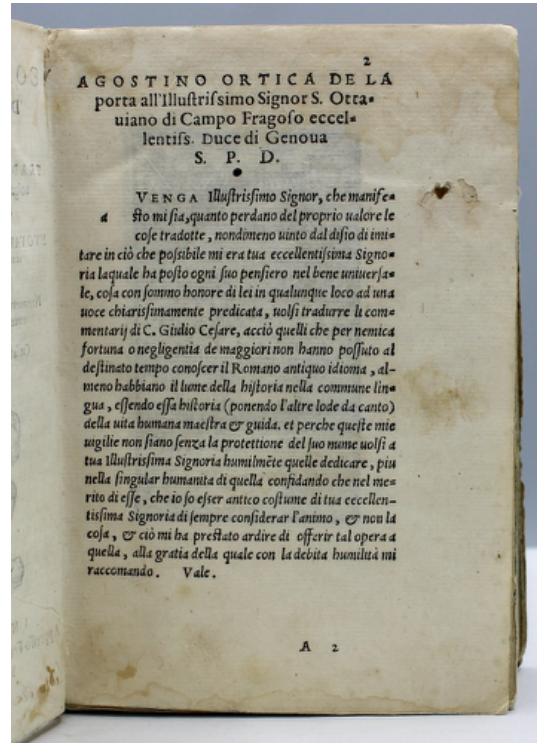 2
AGOSTINO ORTICA DE LA
porta all'Illustrissimo Signor S. Otta-
uiano di Campo Fragoso eccel-
lentiss. Duce di Genoua
S. P. D.
VENGA Illustrissimo Signor, che manife-
a sto mi sia, quanto perdano del proprio ualore le
cose tradotte, nondimeno uinto dal disio di imi-
tare in ciò che possibile mi era tua eccellentissima Signo-
ria laquale ha posto ogni suo pensiero nel bene uniuersa-
le, cosa con sommo honore di lei in qualunque loco ad una
uoce chiarissimamente predicata, uolsi tradurre li com-
mentarij di C. Giulio Cesare, acciò quelli che per nemica
fortuna o negligentia de maggiori non hanno possuto al
destinato tempo conoscer il Romano antiquo idioma, al-
meno habbiano il lume della historia nella commune lin-
gua, essendo essa historia (ponendo l'altre lode da canto)
della uita humana maestra & guida. et perche queste mie
uigilie non siano senza la protettione del suo nume uolsi a
tua Illustrissima Signoria humilmẽte quelle dedicare, piu
nella singular humanita di quella confidando che nel me-
rito di esse, che io so esser antico costume di tua eccellen-
tissima Signoria di sempre considerar l'animo, & non la
cosa, & ciò mi ha prestato ardire di offerir tal opera a
quella, alla gratia della quale con la debita humilità mi
raccomando. Vale.
A 2